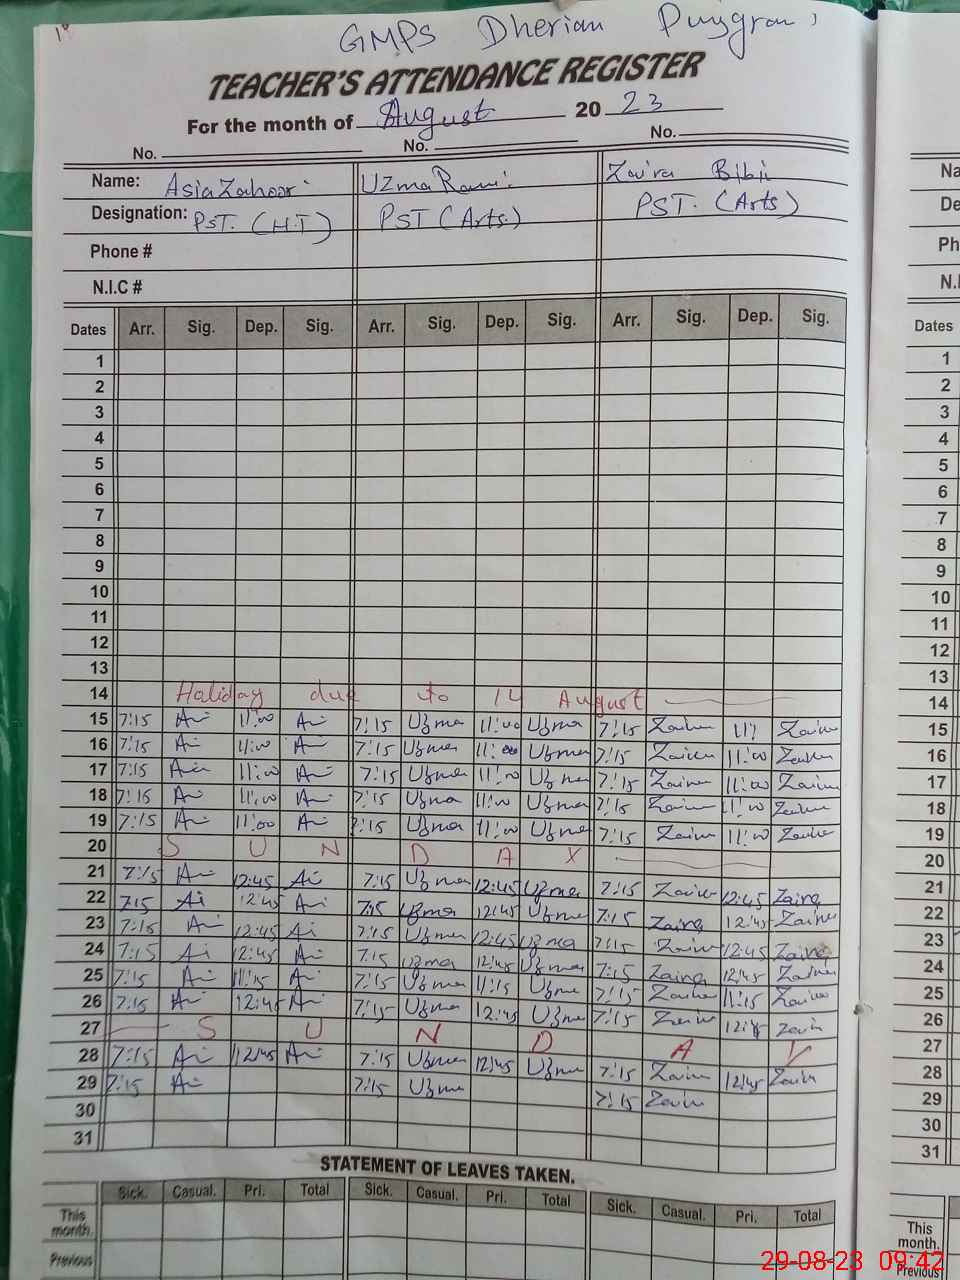 GMPS Dherian Puzgran,
TEACHER'S ATTENDANCE REGISTER
For the month of August 20 23
No. No. No.
Name: Asia Zahoor Uzma Rani. Zaira Bibi
Designation: PST. (H.T) PST (Arts.) PST. (Arts)
Phone #
N.I.C #
Dates Arr. Sig. Dep. Sig. Arr. Sig. Dep. Sig. Arr. Sig. Dep. Sig. Dates
1 1
2 2
3 3
4 4
5 5
6 6
7 7
8 8
9 9
10 10
11 11
12 12
13 13
14 Holiday due to 14 August 14
15 7:15 11:00 7:15 Uzma 11:00 Uzma 7:15 11: 15
16 7:15 11:00 7:15 Uzma 11:00 Uzma 7:15 11:00 16
17 7:15 11:00 7:15 Uzma 11:00 Uzma 7:15 11:00 17
18 7:15 11:00 7:15 Uzma 11:00 Uzma 7:15 11:00 18
19 7:15 11:00 7:15 Uzma 11:00 Uzma 7:15 11:00 19
20 S U N D A Y 20
21 7:15 12:45 7:15 Uzma 12:45 Uzma 7:15 12:45 21
22 7:15 12:45 7:15 Uzma 12:45 Uzma 7:15 12:45 22
23 7:15 12:45 7:15 Uzma 12:45 Uzma 7:15 12:45 23
24 7:15 12:45 7:15 Uzma 12:45 Uzma 7:15 12:45 24
25 7:15 11:15 7:15 Uzma 11:15 Uzma 7:15 11:15 25
26 7:15 12:45 7:15 Uzma 12:45 Uzma 7:15 12:45 26
27 S U N D A Y 27
28 7:15 12:45 7:15 Uzma 12:45 Uzma 7:15 12:45 28
29 7:15 7:15 Uzma 7:15 29
30 30
31 31
STATEMENT OF LEAVES TAKEN.
Sick. Casual. Pri. Total Sick. Casual. Pri. Total Sick. Casual. Pri. Total
This month. This month.
Previous Previous
29-08-23 09:42